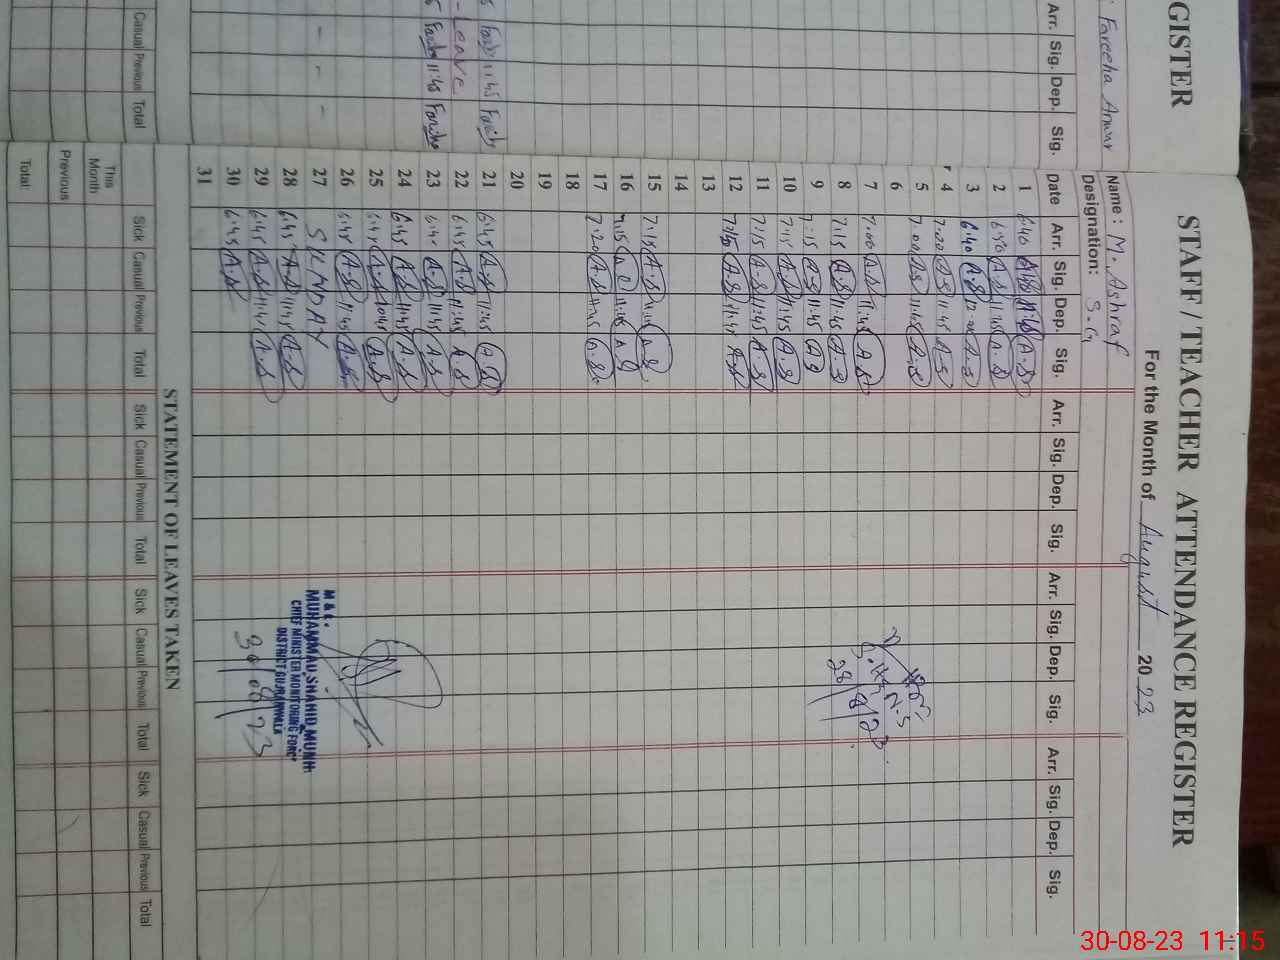 GISTER
Fareeha Anwar
Arr. Sig. Dep. Sig.
11:45
Leave
11:45
Casual Previous Total
STAFF / TEACHER ATTENDANCE REGISTER
For the Month of August 2023
Name : M. Ashraf
Designation: S.G
Date Arr. Sig. Dep. Sig. Arr. Sig. Dep. Sig. Arr. Sig. Dep. Sig. Arr. Sig. Dep. Sig.
1 6:40 A.S
2 6:40 A.S 11:45 A.S
3 6:40 A.S A.S
4 7:00 A.S 11:45 A.S
5 7:00 A.S 11:45 A.S
6
7 7:00 A.S 11:45 A.S
8 7:15 A.S 11:45 A.S
9 7:15 A.S 11:45 A.S
10 7:15 A.S 11:45 A.S
11 7:15 A.S 11:45 A.S
12 7:15 A.S 11:45 A.S
13
14
15 7:15 A.S A.S
16 7:15 A.S 11:45 A.S
17 7:20 A.S 11:45 A.S
18
19
20
21 6:45 A.S 11:45 A.S
22 6:45 A.S 11:45 A.S
23 A.S 11:45 A.S
24 6:45 A.S 11:45 A.S
25 6:45 A.S 10:45 A.S
26 6:45 A.S 11:45 A.S
27 SUNDAY
28 6:45 A.S 11:45 A.S
29 6:45 A.S 11:45 A.S
30 6:45 A.S
31
28/8/23
MUHAMMAD SHAHID MUNIR
CHIEF MINISTER MONITORING FORCE
DISTRICT GUJRANWALA
30/08/23
STATEMENT OF LEAVES TAKEN
Sick Casual Previous Total Sick Casual Previous Total Sick Casual Previous Total Sick Casual Previous Total
This Month
Previous
Total:
30-08-23 11:15